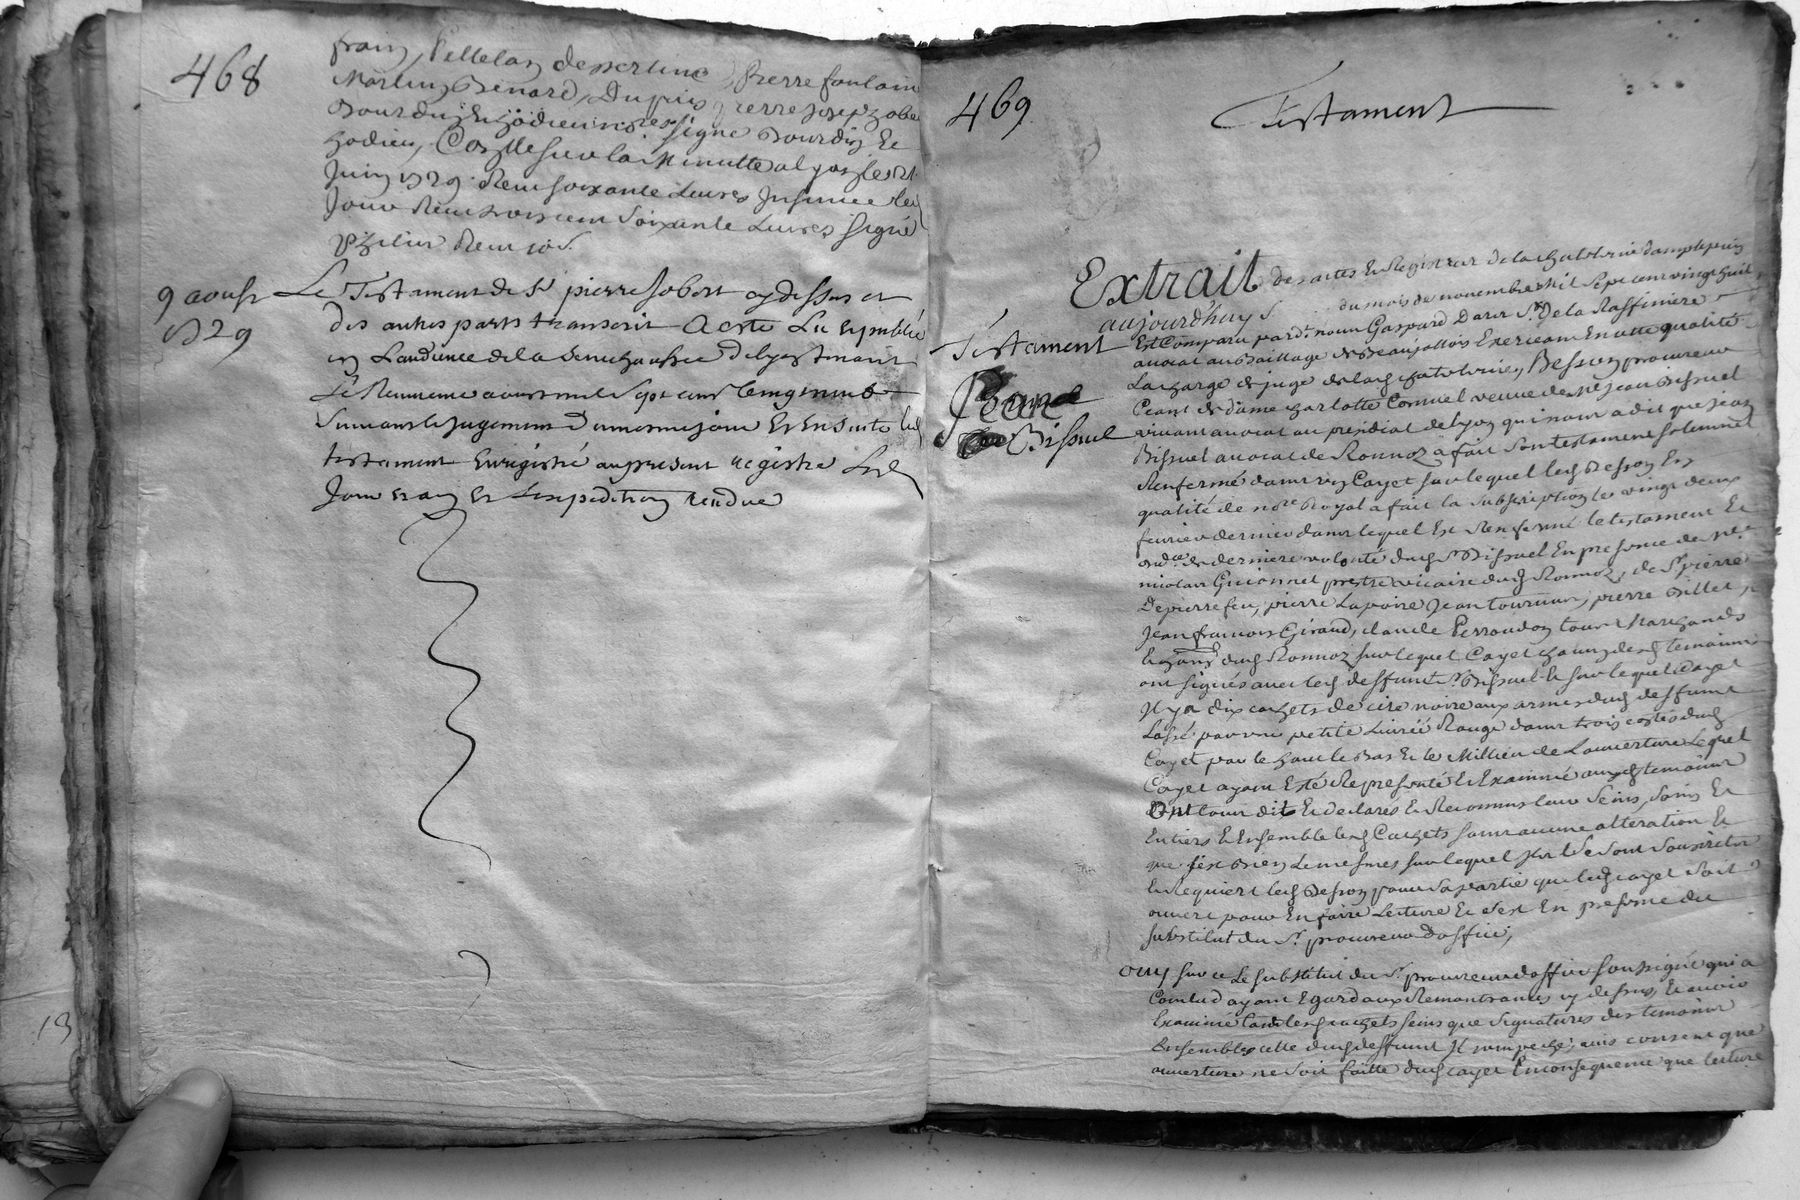 468
frain, Pellelan depertine, Pierre foulain
Martin, Benard, Dupuis, pierre Josep Jober
Bourdin Et hodieu no.res signé Bourdin Et
hodieu, Con.lle sur la Minutte a lyon le 21
Juin 1729. Receu soixante Livres Insinué led
Jour Receu trois cent soixante Livres signé
Receu 10 s.
9 aoust
1729
Le Testament de Sr pierre Jobert cy dessus et
des autres parts transcrit a esté Lu et publié
en Laudience de la Senechaussée de lyon tenant
Le Neuvieme aoust mil sept cent vingt neuf
Suivant le Jugement du mesme jour Et En suite led
testament Enregistré au present registre Led
Jour et an et L'expedition rendue
13
469
Testament
Testament
Jean
Bissuel
Extrait des actes Et Registres de la chatelenie damplepuis
aujourdhuy du mois de novembre Mil sept cent vingt huit
Est Comparu pard.t nous Gaspard Sr De la Raffiniere
avocat au Baillage de Beaujollois Exercant En cette qualité
La charge de juge de lad chatelenie, Besson procureur
Ceant de dame charlotte Cornuel veuve de Me Jean Bissuel
vivant avocat au presidial de lyon qui nous a dit que Jean
Bissuel avocat de Ronnoz a fait son testament solemnel
Renfermé dans un Cayet sur lequel led Besson En
qualité de no.re Royal a fait la subscription le vingt deux
fevrier dernier dans lequel Est Renfermé le testament Et
ord.ce de derniere volonté dud Sr Bissuel En presence de Me
nicolas Guionnet prestre vicaire dud Ronnoz, de Sr pierre
Depierrefeu, pierre Lapoire Jean tournus, pierre Billet,
Jean francois Giraud, claude Perraudon tous Marchands
dud Ronnoz sur lequel Cayet chacun desd temoins
ont signés avec led deffunt Sr Bissuel & sur lequel Cayet
Il y a dix cachets de cire noire aux armes dud deffunt
Lassé par une petite Livrée Rouge dans trois costés dud
Cayet par le haut le Bas Et le Millieu de Louverture Lequel
Cayet ayant Esté Represonté Et Examiné auxd temoins
Ont tous dit Et declarés Et Reconnus leur Seins, Sains Et
Entiers Et Ensemble lesd Cachets sans aucune alteration Et
que s'est Bien Le mesmes sur lequel Ils se sont souscrits
Et Requiert led Besson pour sa partie que led cayet soit
ouvert pour En faire Lecture Et c'est En presence du
substitut du Sr. procureur d'office,
Ouy sur ce Le substitut du Sr. procureur d'office soussigné qui a
Conclud ayant Egard aux Remontrances cy dessus, Et avoir
Examiné tant lesd cachets seins que signatures des temoins
Ensembles celle dud deffunt Il n'empeche, ains consent que
ouverture ne soit faitte dud cayet En consequence que lecture